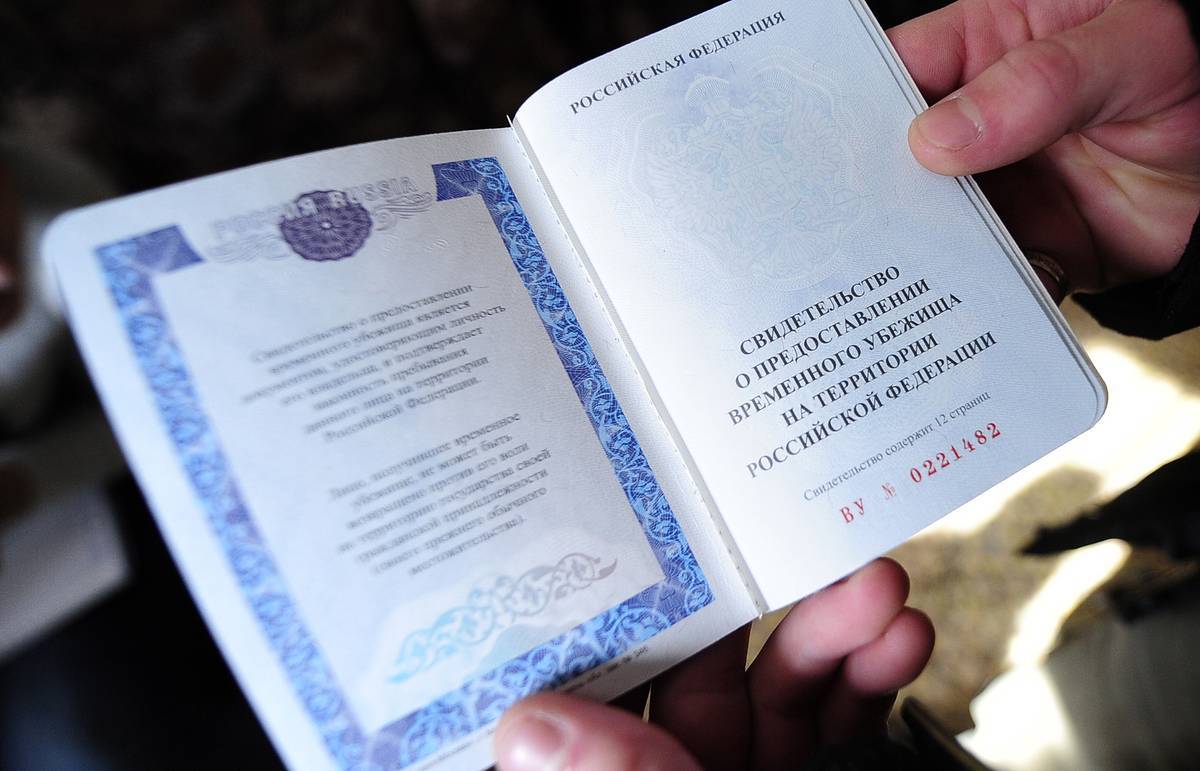 РОССИЯ RUSSIA
Свидетельство о предоставлении
временного убежища является
документом, удостоверяющим личность
его владельца, и подтверждает
законность пребывания
данного лица на территории
Российской Федерации.
Лицо, получившее временное
убежище, не может быть
возвращено против его воли
на территорию государства своей
гражданской принадлежности
(своего прежнего обычного
местожительства).
РОССИЙСКАЯ ФЕДЕРАЦИЯ
СВИДЕТЕЛЬСТВО
О ПРЕДОСТАВЛЕНИИ
ВРЕМЕННОГО УБЕЖИЩА
НА ТЕРРИТОРИИ
РОССИЙСКОЙ ФЕДЕРАЦИИ
Свидетельство содержит 12 страниц
ВУ № 0221482